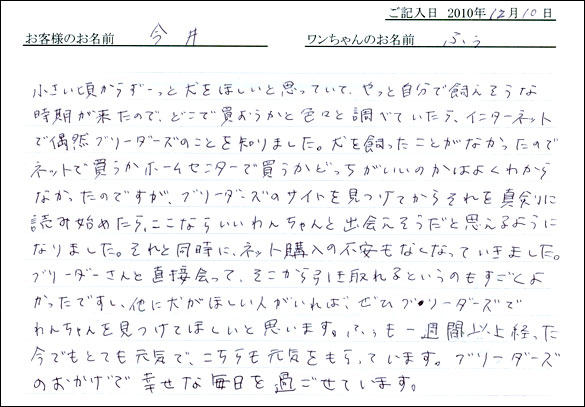 ご記入日 2010年12月10日
お客様のお名前 今井 ワンちゃんのお名前 ふぅ
小さい頃からずーっと犬をほしいと思っていて、やっと自分で飼えそうな
時期が来たので、どこで買おうかと色々と調べていたら、インターネット
で偶然ブリーダーズのことを知りました。犬を飼ったことがなかったので
ネットで買うかホームセンターで買うかどっちがいいのかはよくわから
なかったのですが、ブリーダーズのサイトを見つけてからそれを真剣に
読み始めたら、ここならいいわんちゃんと出会えそうだと思えるように
なりました。それと同時に、ネット購入の不安もなくなっていきました。
ブリーダーさんと直接会って、そこから引き取れるというのもすごくよ
かったですし、他に犬がほしい人がいれば、ぜひブリーダーズで
わんちゃんを見つけてほしいと思います。ふぅも一週間以上経った
今でもとても元気で、こちらも元気をもらっています。ブリーダーズ
のおかげで幸せな毎日を過ごせています。